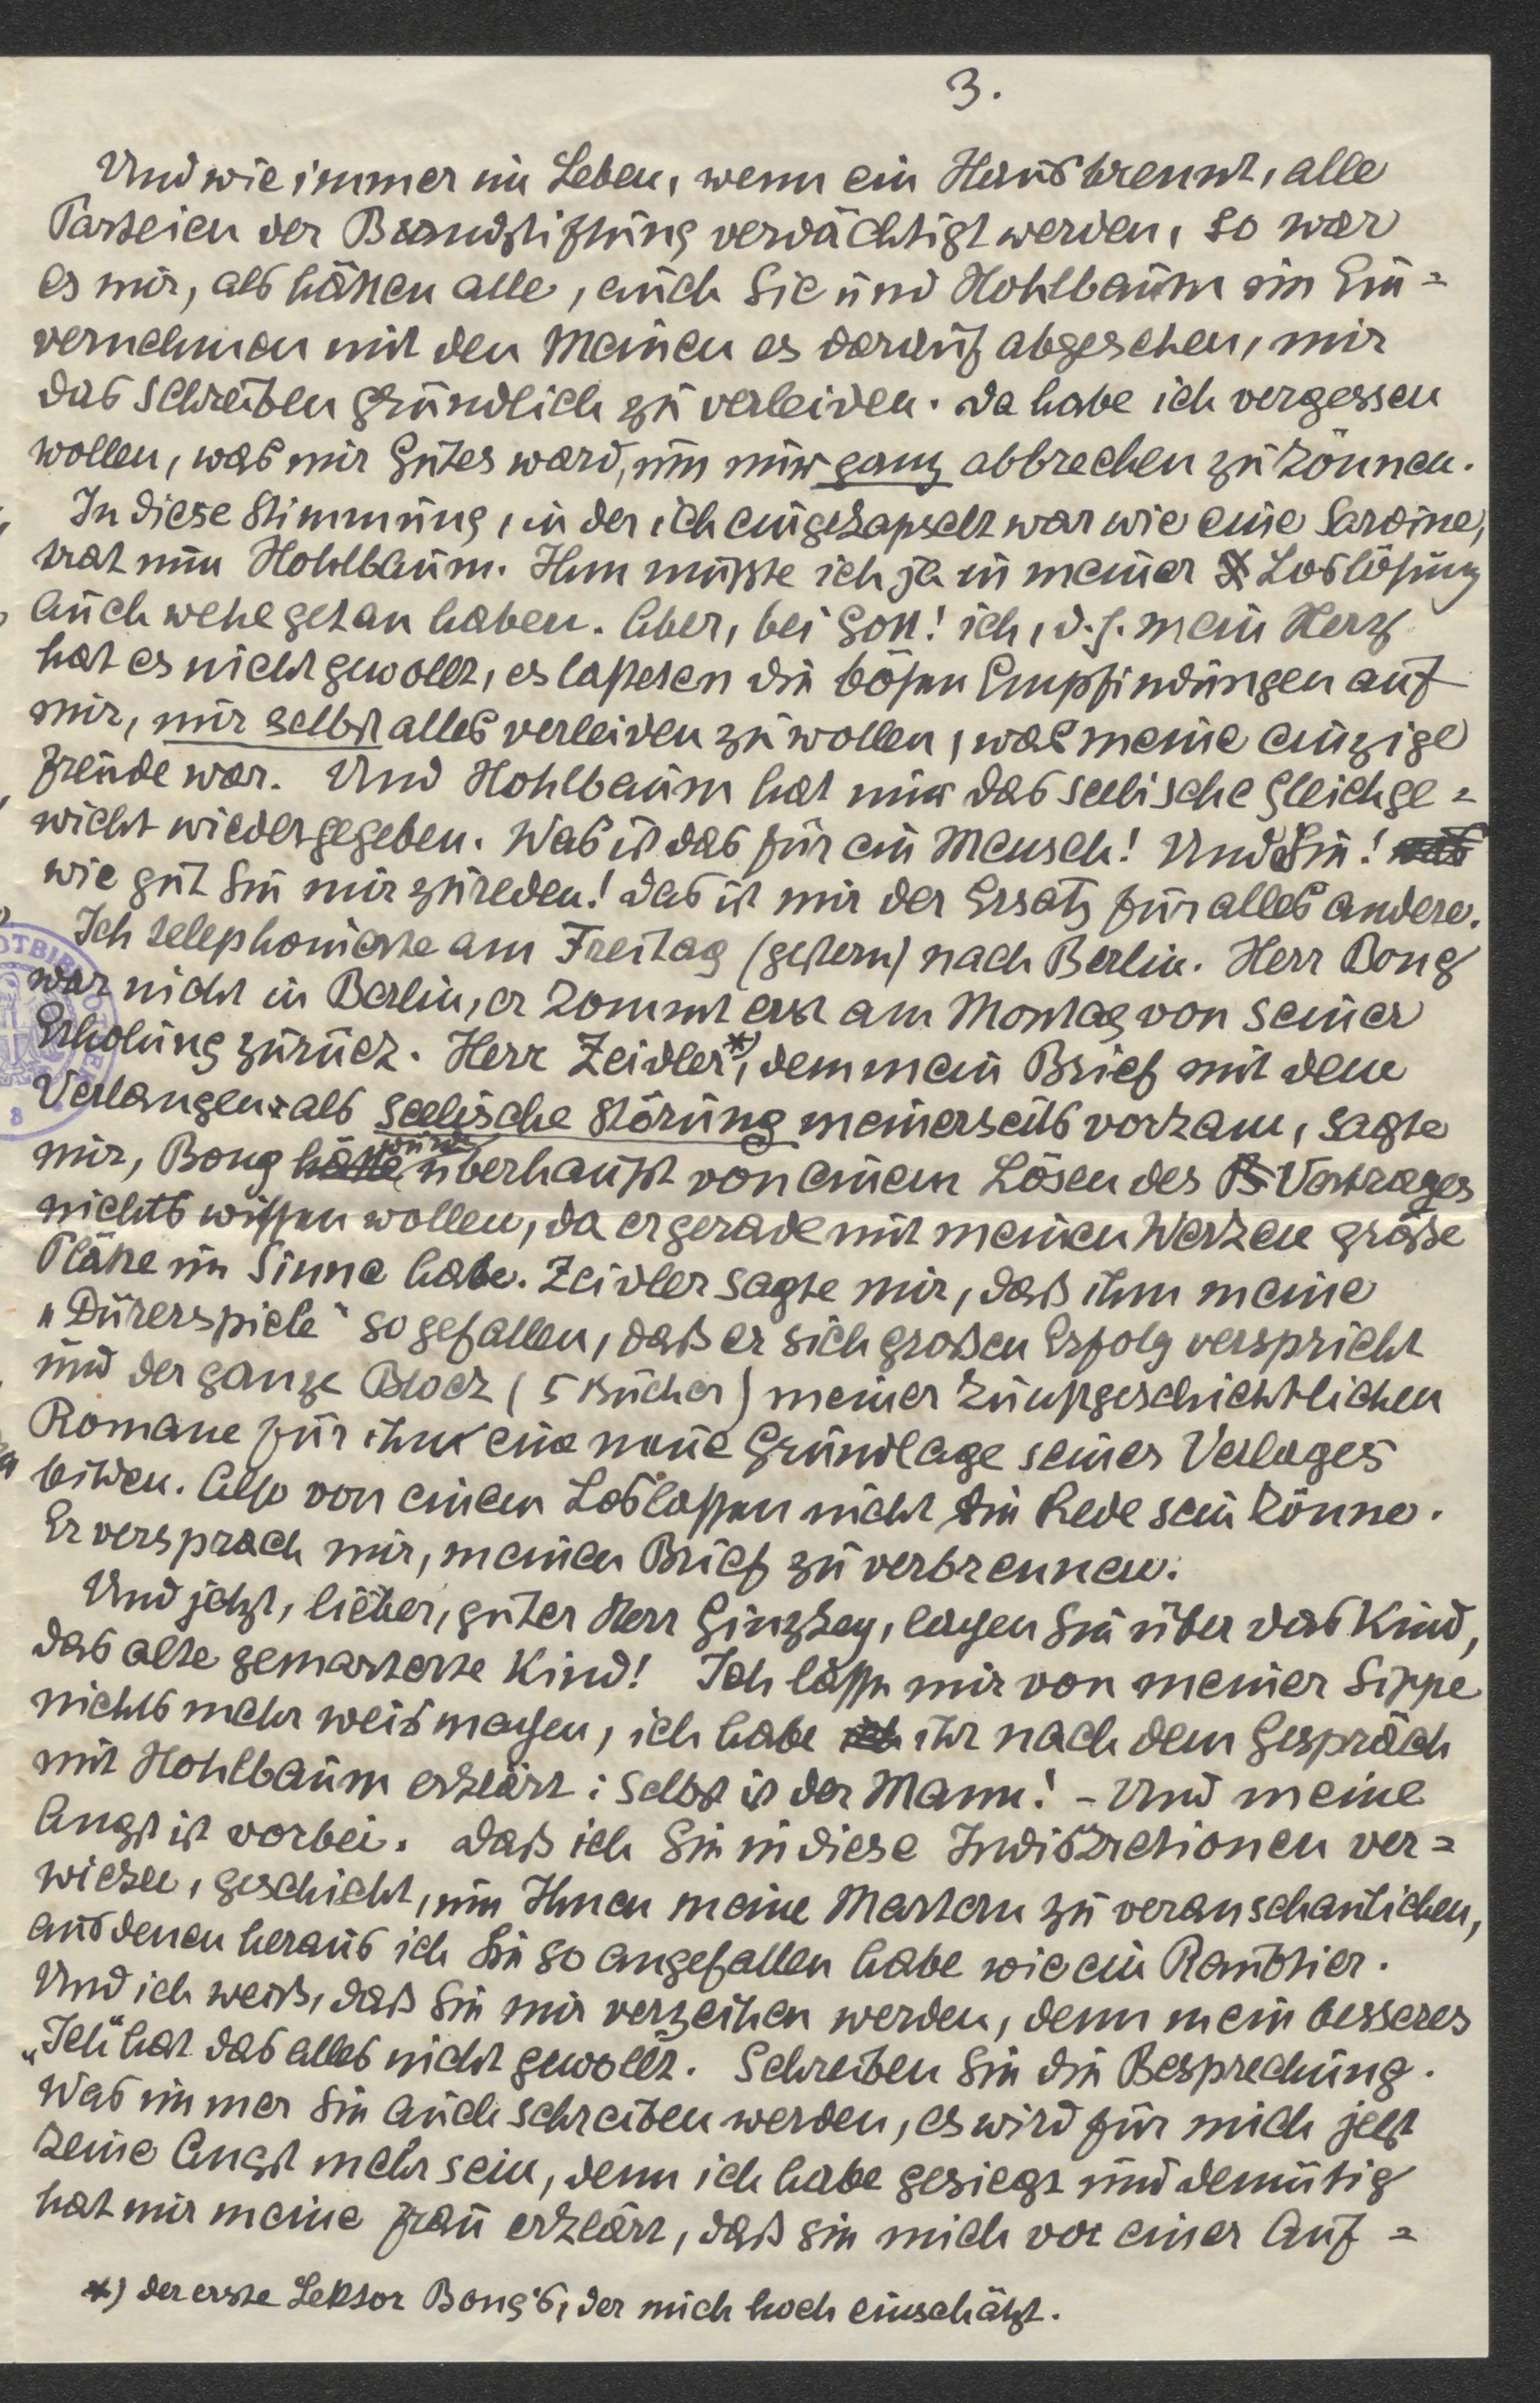 3.
Und wie immer im Leben, wenn ein Haus brennt, alle
Parteien der Brandstiftung verdächtigt werden, so war
es mir, als hätten alle, auch Sie und Hohlbaum im Ein=
vernehmen mit den Meinen es darauf abgesehen, mir
das Schreiben gründlich zu verleiden. Da habe ich vergessen
wollen, was mir Gutes ward, um nur ganz abbrechen zu können.
In diese Stimmung, in der ich eingekapselt war wie eine Sardine,
trat nun Hohlbaum. Ihm mußte ich ja in meiner Loslösung
auch wehe getan haben. Aber, bei Gott! ich, d. h. mein Herz
hat es nicht gewollt, es lasteten die bösen Empfindungen auf
mir, mir selbst alles verleiden zu wollen, was meine einzige
Freude war. Und Hohlbaum hat mir das seelische Gleichge=
wicht wiedergegeben. Was ist das für ein Mensch! Und Sie! was
wie gut Sie mir zureden! Das ist mir der Ersatz für alles andere.
Ich telephonierte am Freitag (gestern) nach Berlin. Herr Bong
war nicht in Berlin, er kommt erst am Montag von seiner
Erholung zurück. Herr Zeidler*), dem mein Brief mit dem
Verlangen als seelische Störung meinerseits vorkam, sagte
mir, Bong hätte würde überhaupt von einem Lösen des Vertrages
nichts wissen wollen, da er gerade mit meinen Werken große
Pläne im Sinne habe. Zeidler sagte mir, daß ihm meine
„Dürerspiele“ so gefallen, daß er sich großen Erfolg verspricht
und der ganze Block (5 Bücher) meiner kunstgeschichtlichen
Romane für ihn eine neue Grundlage seines Verlages
bilden. Also von einem Loslassen nicht die Rede sein könne.
Er versprach mir, meinen Brief zu verbrennen.
Und jetzt, lieber, guter Herr Ginzkey, lachen Sie über das Kind,
das alte gemarterte Kind! Ich lasse mir von meiner Sippe
nichts mehr weis machen, ich habe ich ihr nach dem Gespräch
mit Hohlbaum erklärt: selbst ist der Mann! – Und meine
Angst ist vorbei. Daß ich Sie in diese Indiskretionen ver=
wickle, geschieht, um Ihnen meine Martern zu veranschaulichen,
aus denen heraus ich Sie so angefallen habe wie ein Raubtier.
Und ich weiß, daß Sie mir verzeihen werden, denn mein besseres
„Ich“ hat das alles nicht gewollt. Schreiben Sie die Besprechung.
Was immer Sie auch schreiben werden, es wird für mich jetzt
keine Angst mehr sein, denn ich habe gesiegt und demütig
hat mir meine Frau erklärt, daß sie mich vor einer Auf=
*) der erste Lektor Bong's, der mich hoch einschätzt.